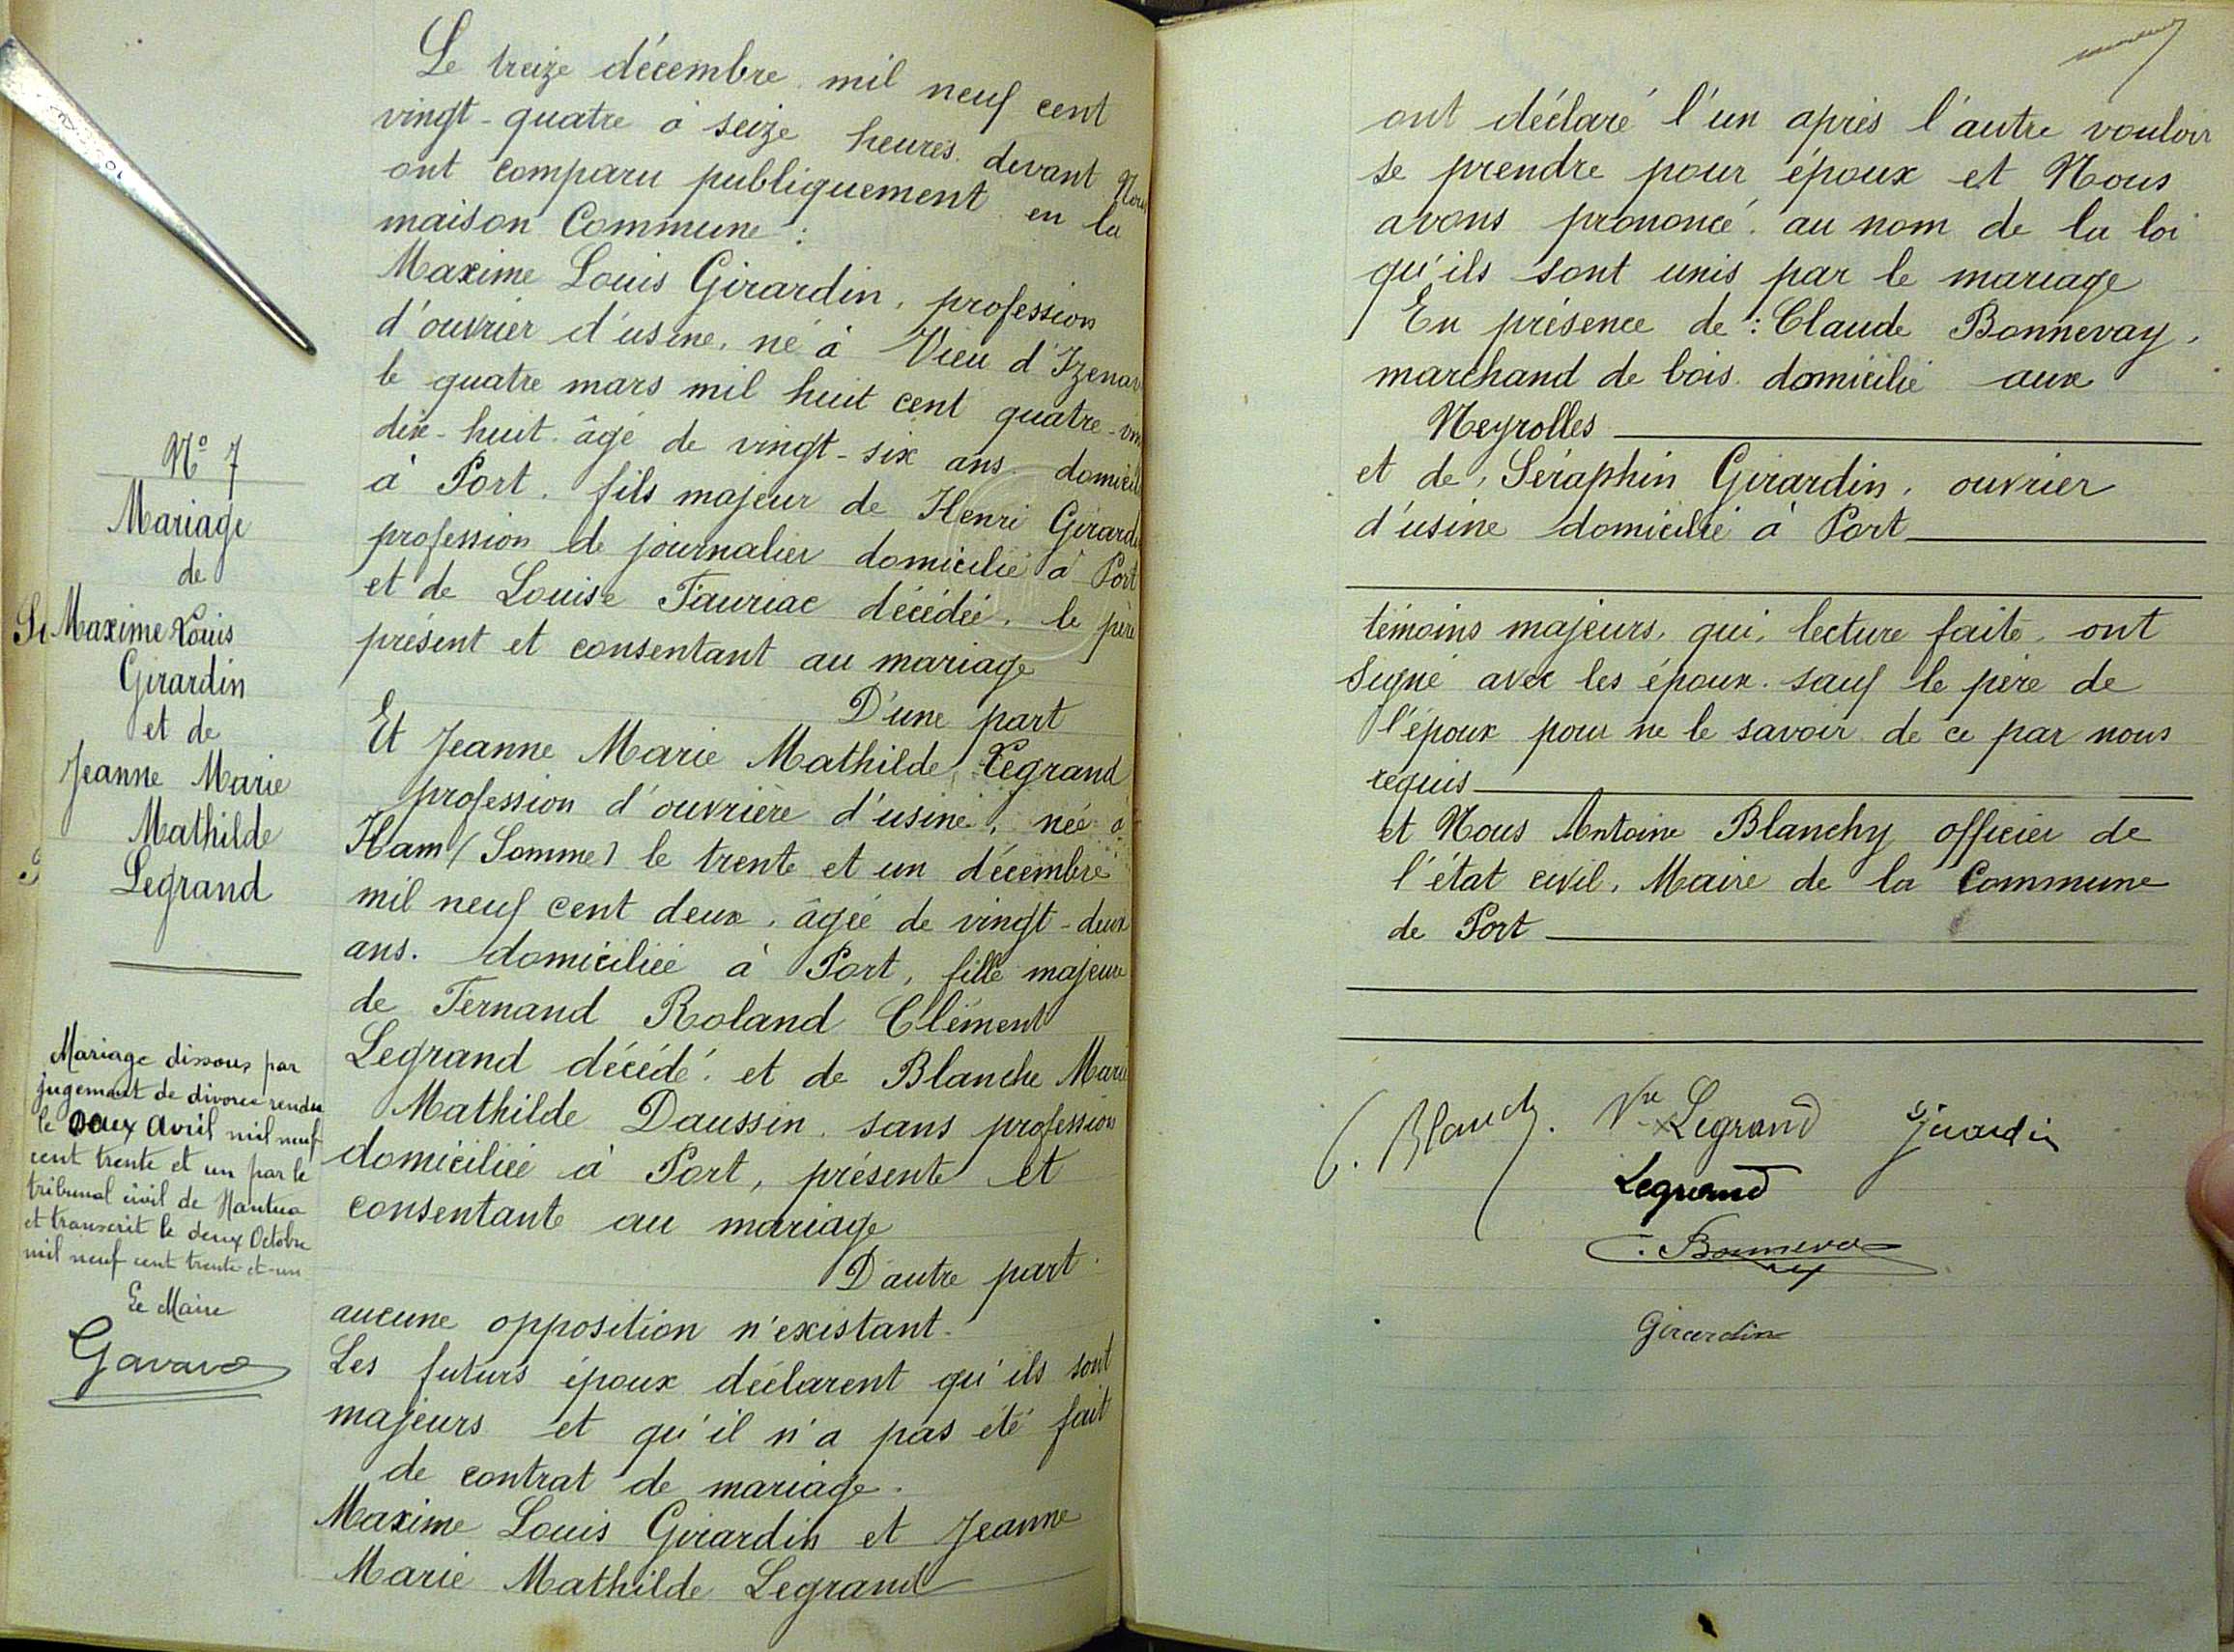 Le treize décembre mil neuf cent
vingt-quatre à seize heures devant Nous
ont comparu publiquement en la
maison Commune :
Maxime Louis Girardin, profession
d'ouvrier d'usine, né à Vieu d'Izenav
le quatre mars mil huit cent quatre-vin
dix-huit âgé de vingt-six ans domicil
à Port, fils majeur de Henri Girardi
profession de journalier domicilié à Port
et de Louise Fauriac décédée, le père
présent et consentant au mariage
D'une part
Et Jeanne Marie Mathilde Legrand
profession d'ouvrière d'usine, née à
Ham (Somme) le trente et un décembre
mil neuf cent deux, âgée de vingt-deux
ans. domiciliée à Port, fille majeure
de Fernand Roland Clément
Legrand décédé, et de Blanche Marie
Mathilde Daussin, sans profession
domiciliée à Port, présente et
consentante au mariage
D'autre part.
aucune opposition n'existant.
Les futurs époux déclarent qu'ils sont
majeurs et qu'il n'a pas été fait
de contrat de mariage.
Maxime Louis Girardin et Jeanne
Marie Mathilde Legrand
N° 7
Mariage
de
Maxime Louis
Girardin
et de
Jeanne Marie
Mathilde
Legrand
Mariage dissous par
jugement de divorce rendu
le deux Avril mil neuf
cent trente et un par le
tribunal civil de Nantua
et transcrit le deux Octobre
mil neuf cent trente-et-un
Le Maire
ont déclaré l'un après l'autre vouloir
se prendre pour époux et Nous
avons prononcé au nom de la loi
qu'ils sont unis par le mariage
En présence de : Claude Bonnevay,
marchand de bois domicilié aux
Neyrolles
et de, Séraphin Girardin, ouvrier
d'usine domicilié à Port
témoins majeurs, qui, lecture faite, ont
signé avec les époux sauf le père de
l'époux pour ne le savoir de ce par nous
requis
et Nous Antoine Blanchy officier de
l'état civil, Maire de la Commune
de Port
Vve Legrand Girardin
Legrand
C. Bonnevay
Girardin